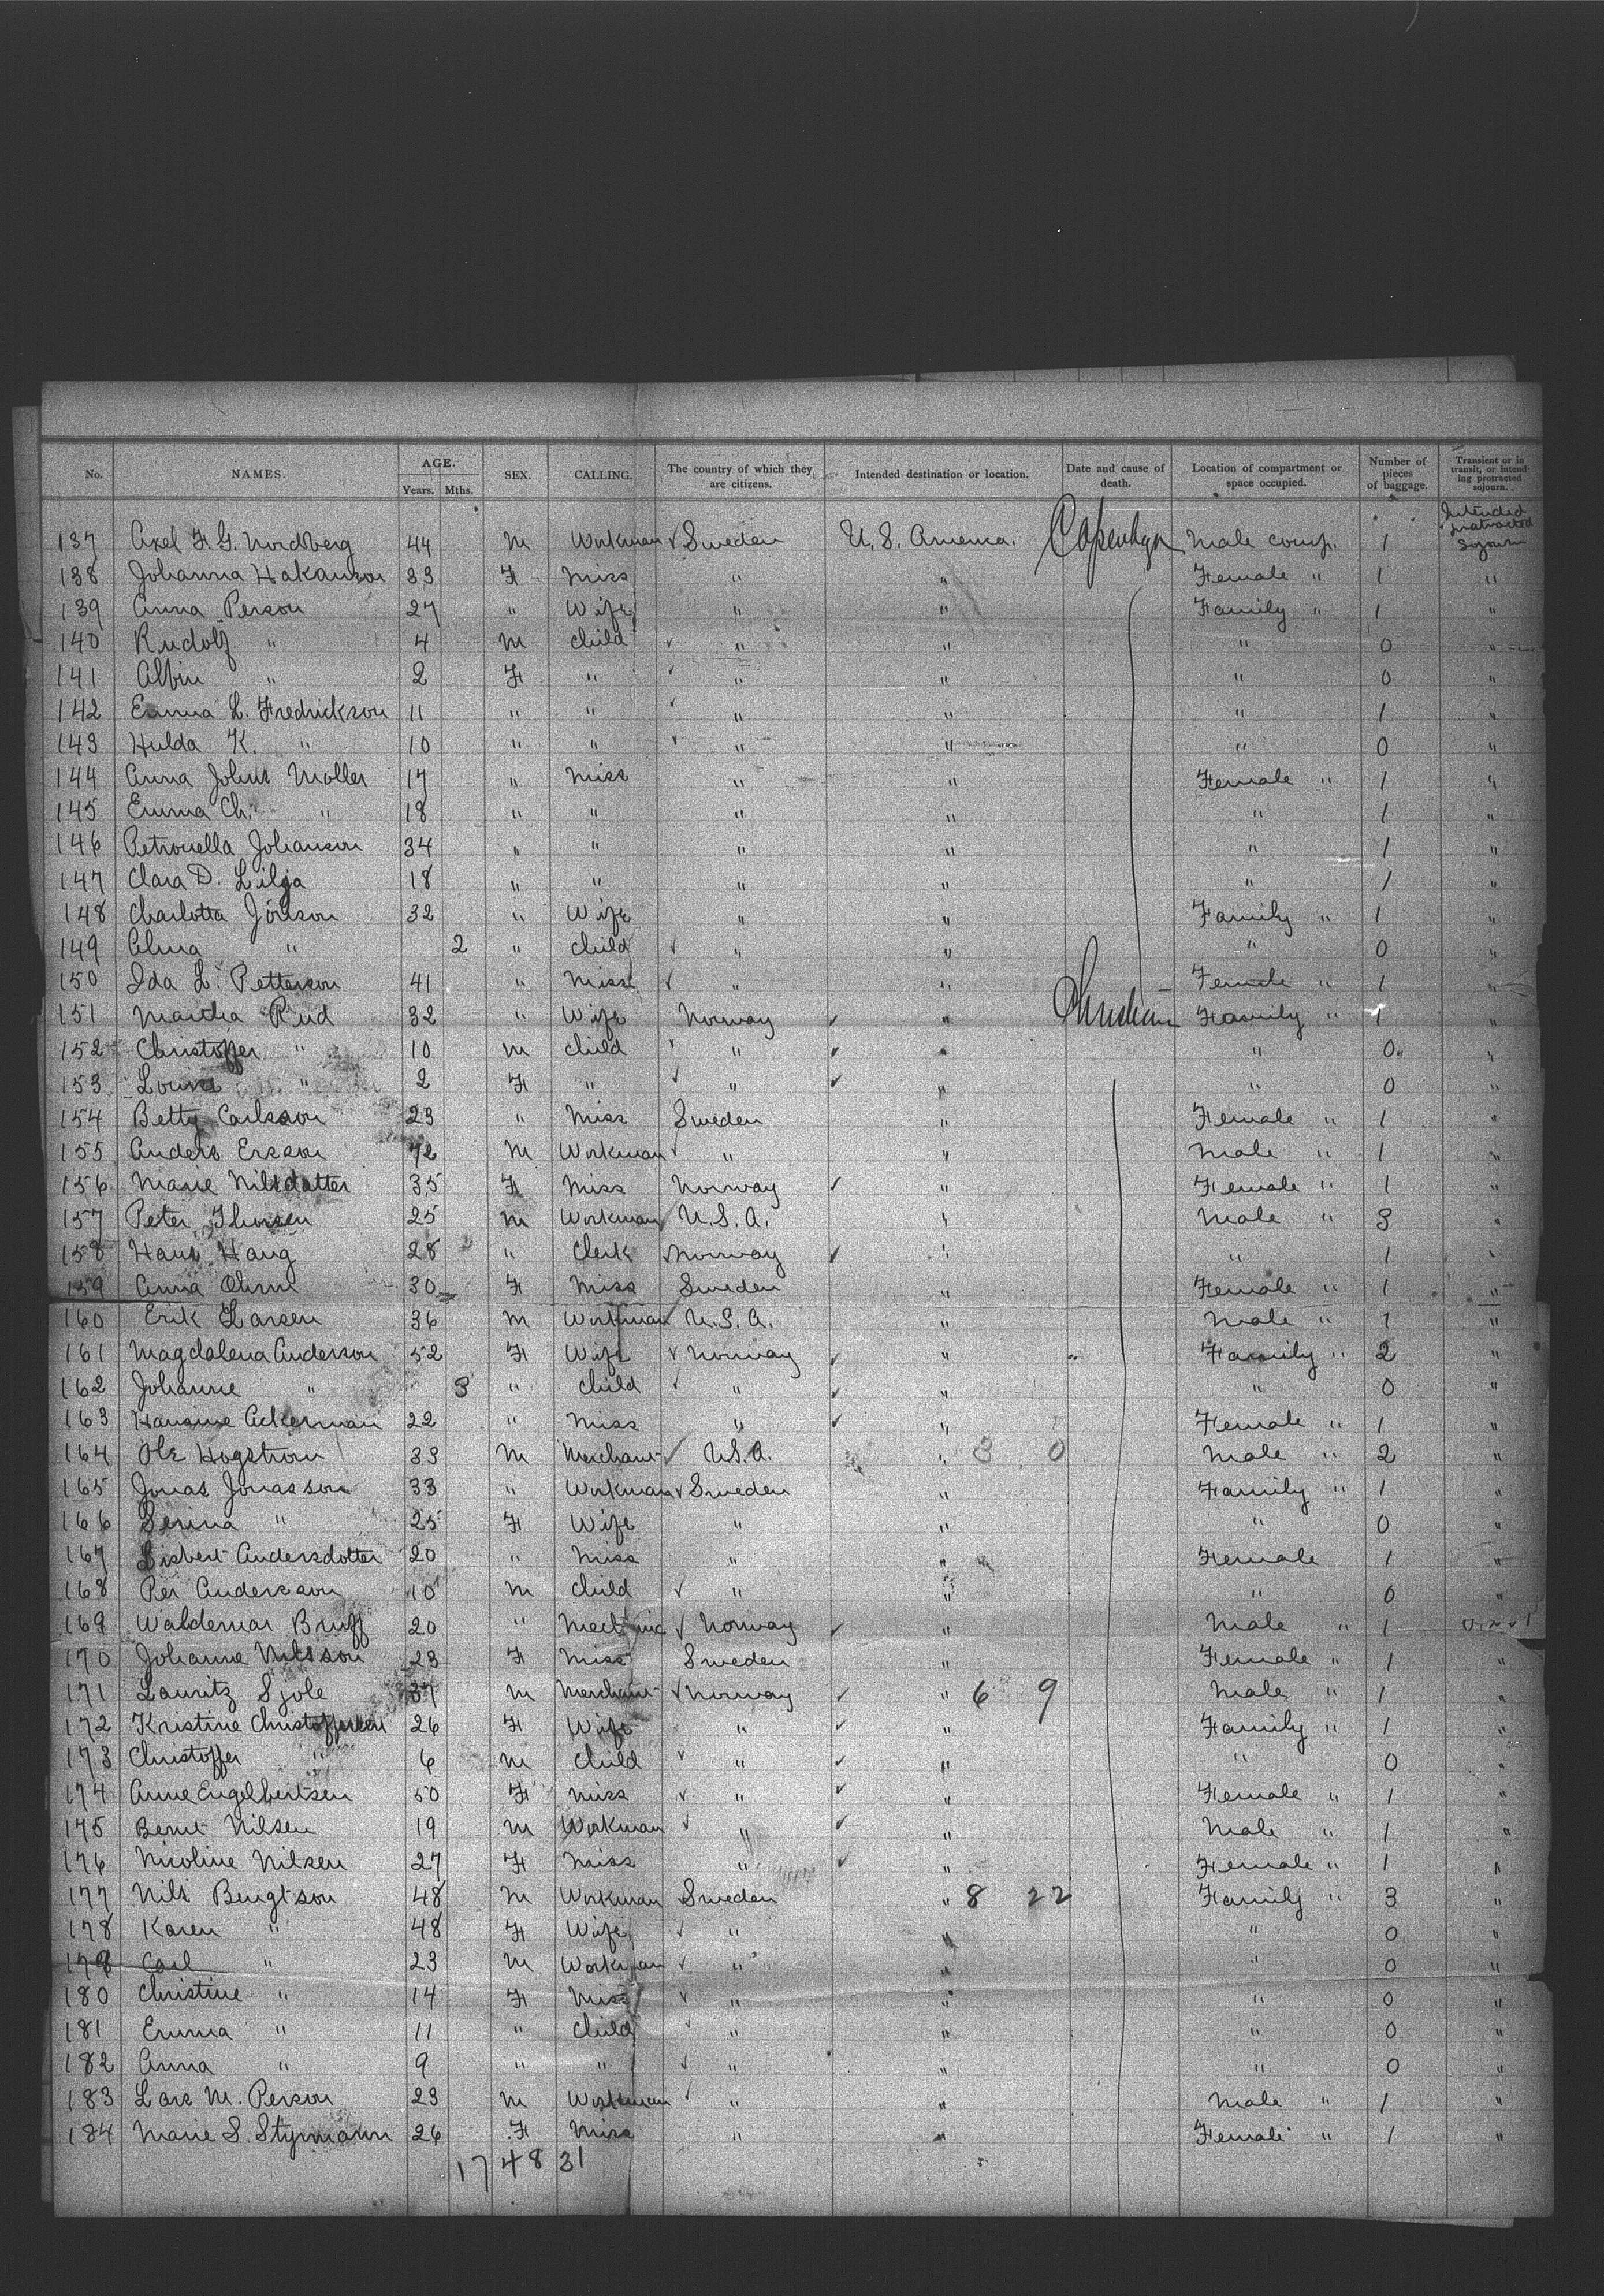 No. NAMES. AGE. Years. Mths. SEX. CALLING. The country of which they are citizens. Intended destination or location. Date and cause of death. Location of compartment or space occupied. Number of pieces of baggage. Transient or in transit, or intending protracted sojourn.
137 Axel F. G. Nordberg 44 M Workman Sweden U. S. America. Male comp. 1 Intended protracted Sojourn
138 Johanna Hakanson 33 F Miss " " Female " 1 "
139 Anna Person 27 " Wife " " Family " 1 "
140 Rudolf " 4 M Child " " " 0 "
141 Albin " 2 F " " " " 0 "
142 Emma L. Fredrickson 11 " " " " " 1 "
143 Hulda K. " 10 " " " " " 0 "
144 Anna Johns Moller 17 " Miss " " Female " 1 "
145 Emma Ch. " 18 " " " " " 1 "
146 Petronella Johanson 34 " " " " " 1 "
147 Clara D. Lilja 18 " " " " " 1 "
148 Charlotta Jonson 32 " Wife " " Family " 1 "
149 Alma " 2 " Child " " " 0 "
150 Ida L. Petterson 41 " Miss " " Female " 1 "
151 Martha Rud 32 " Wife Norway " Family " 1 "
152 Christoffer " 10 M Child " " " 0 "
153 Louise " 2 F " " " " 0 "
154 Betty Carlsson 23 " Miss Sweden " Female " 1 "
155 Anders Ersson 42 M Workman " " Male " 1 "
156 Marie Nilsdatter 35 F Miss Norway " Female " 1 "
157 Peter Thorsen 25 M Workman U. S. A. " Male " 3 "
158 Hans Haug 28 " Clerk Norway " " 1 "
159 Anna Ohrn 30 F Miss Sweden " Female " 1 "
160 Erik Larsen 36 M Workman U. S. A. " Male " 1 "
161 Magdalena Anderson 52 F Wife Norway " Family " 2 "
162 Johanne " 3 " Child " " " 0 "
163 Hansine Ackerman 22 " Miss " " Female " 1 "
164 Ole Hogstrom 33 M Merchant U.S.A. " 3 0 Male " 2 "
165 Jonas Jonasson 33 " Workman Sweden " Family " 1 "
166 Serina " 25 F Wife " " " 0 "
167 Lisbert Andersdotter 20 " Miss " " Female 1 "
168 Per Andersson 10 M Child " " " 0 "
169 Waldemar Bruff 20 " Norway " Male " 1
170 Johanna Nilsson 23 F Miss Sweden " Female " 1 "
171 Lauritz Sjole 37 M Merchant Norway " 6 9 Male " 1 "
172 Kristine Christoffersen 26 F Wife " " Family " 1 "
173 Christoffer " 6 M Child " " " 0 "
174 Anne Engelbertsen 50 F Miss " " Female " 1 "
175 Bernt Nilsen 19 M Workman " " Male " 1 "
176 Nicoline Nilsen 27 F Miss " " Female " 1 "
177 Nils Bengtson 48 M Workman Sweden " 8 22 Family " 3 "
178 Karen " 48 F Wife " " " 0 "
179 Carl " 23 M Workman " " " 0 "
180 Christine " 14 F Miss " " " 0 "
181 Emma " 11 " Child " " " 0 "
182 Anna " 9 " " " " " 0 "
183 Lars M. Person 23 M Workman " " Male " 1 "
184 Marie S. Stymann 26 F Miss " " Female " 1 "
17 48 31